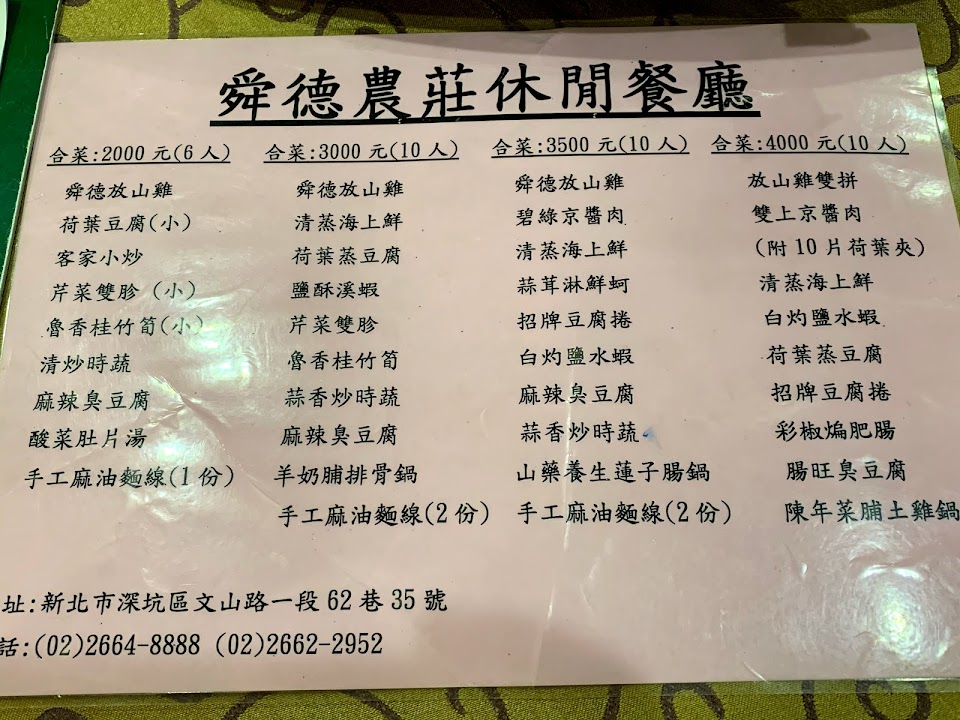 舜德農莊休閒餐廳
合菜:2000 元(6 人)
舜德放山雞
荷葉豆腐(小)
客家小炒
芹菜雙胗 (小)
魯香桂竹筍(小)
清炒時蔬
麻辣臭豆腐
酸菜肚片湯
手工麻油麵線(1 份)
合菜:3000 元(10 人)
舜德放山雞
清蒸海上鮮
荷葉蒸豆腐
鹽酥溪蝦
芹菜雙胗
魯香桂竹筍
蒜香炒時蔬
麻辣臭豆腐
羊奶脯排骨鍋
手工麻油麵線(2 份)
合菜:3500 元(10 人)
舜德放山雞
碧綠京醬肉
清蒸海上鮮
蒜茸淋鮮蚵
招牌豆腐捲
白灼鹽水蝦
麻辣臭豆腐
蒜香炒時蔬
山藥養生蓮子腸鍋
手工麻油麵線(2 份)
合菜:4000 元(10 人)
放山雞雙拼
雙上京醬肉
(附 10 片荷葉夾)
清蒸海上鮮
白灼鹽水蝦
荷葉蒸豆腐
招牌豆腐捲
彩椒煸肥腸
腸旺臭豆腐
陳年菜脯土雞鍋
址:新北市深坑區文山路一段 62 巷 35 號
話:(02)2664-8888 (02)2662-2952